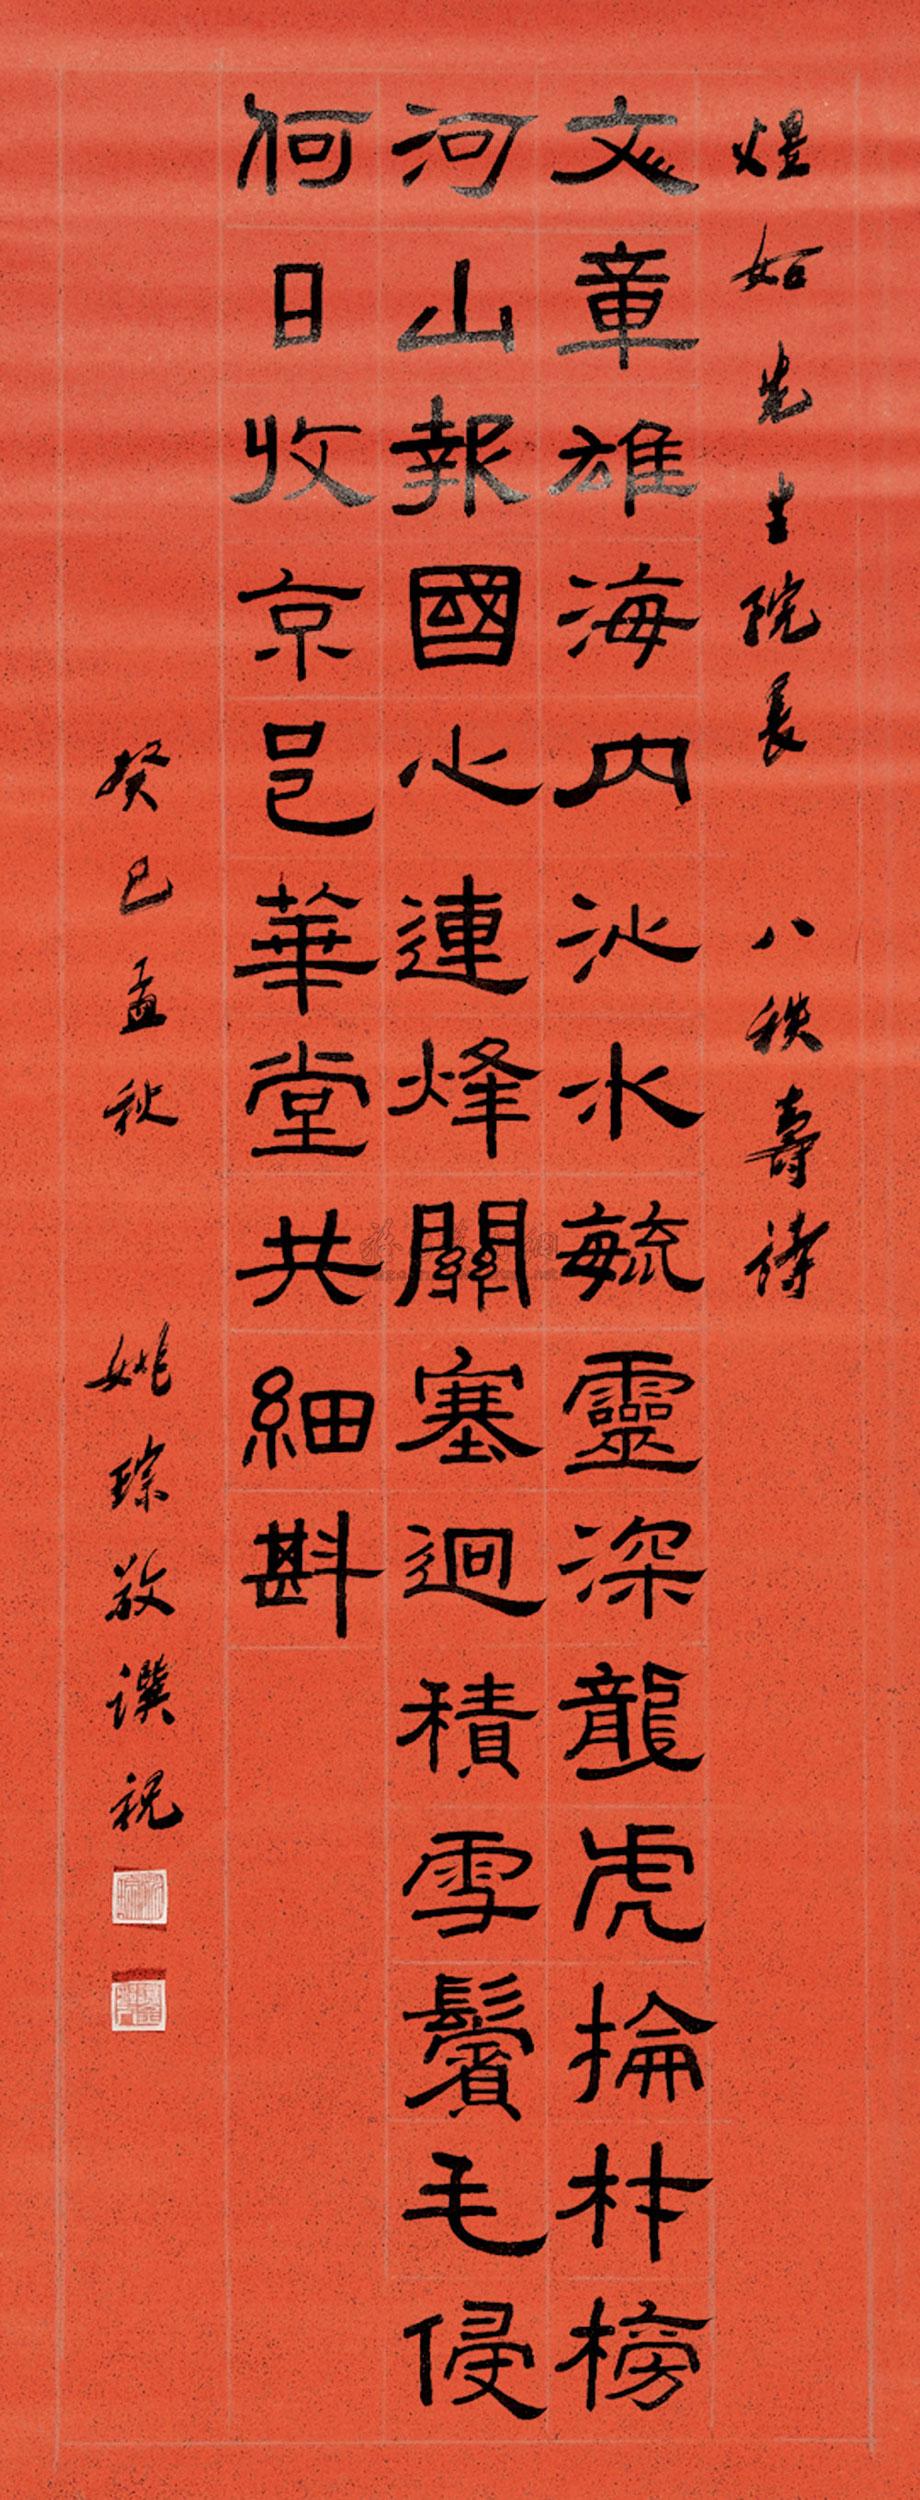 煜如先生院長 八秩壽詩
文章雄海內沁水毓靈深龍虎掄材榜
河山報國心連烽關塞迥積雪鬢毛侵
何日收京邑華堂共細斟
癸巳孟秋 姚琮敬譔祝